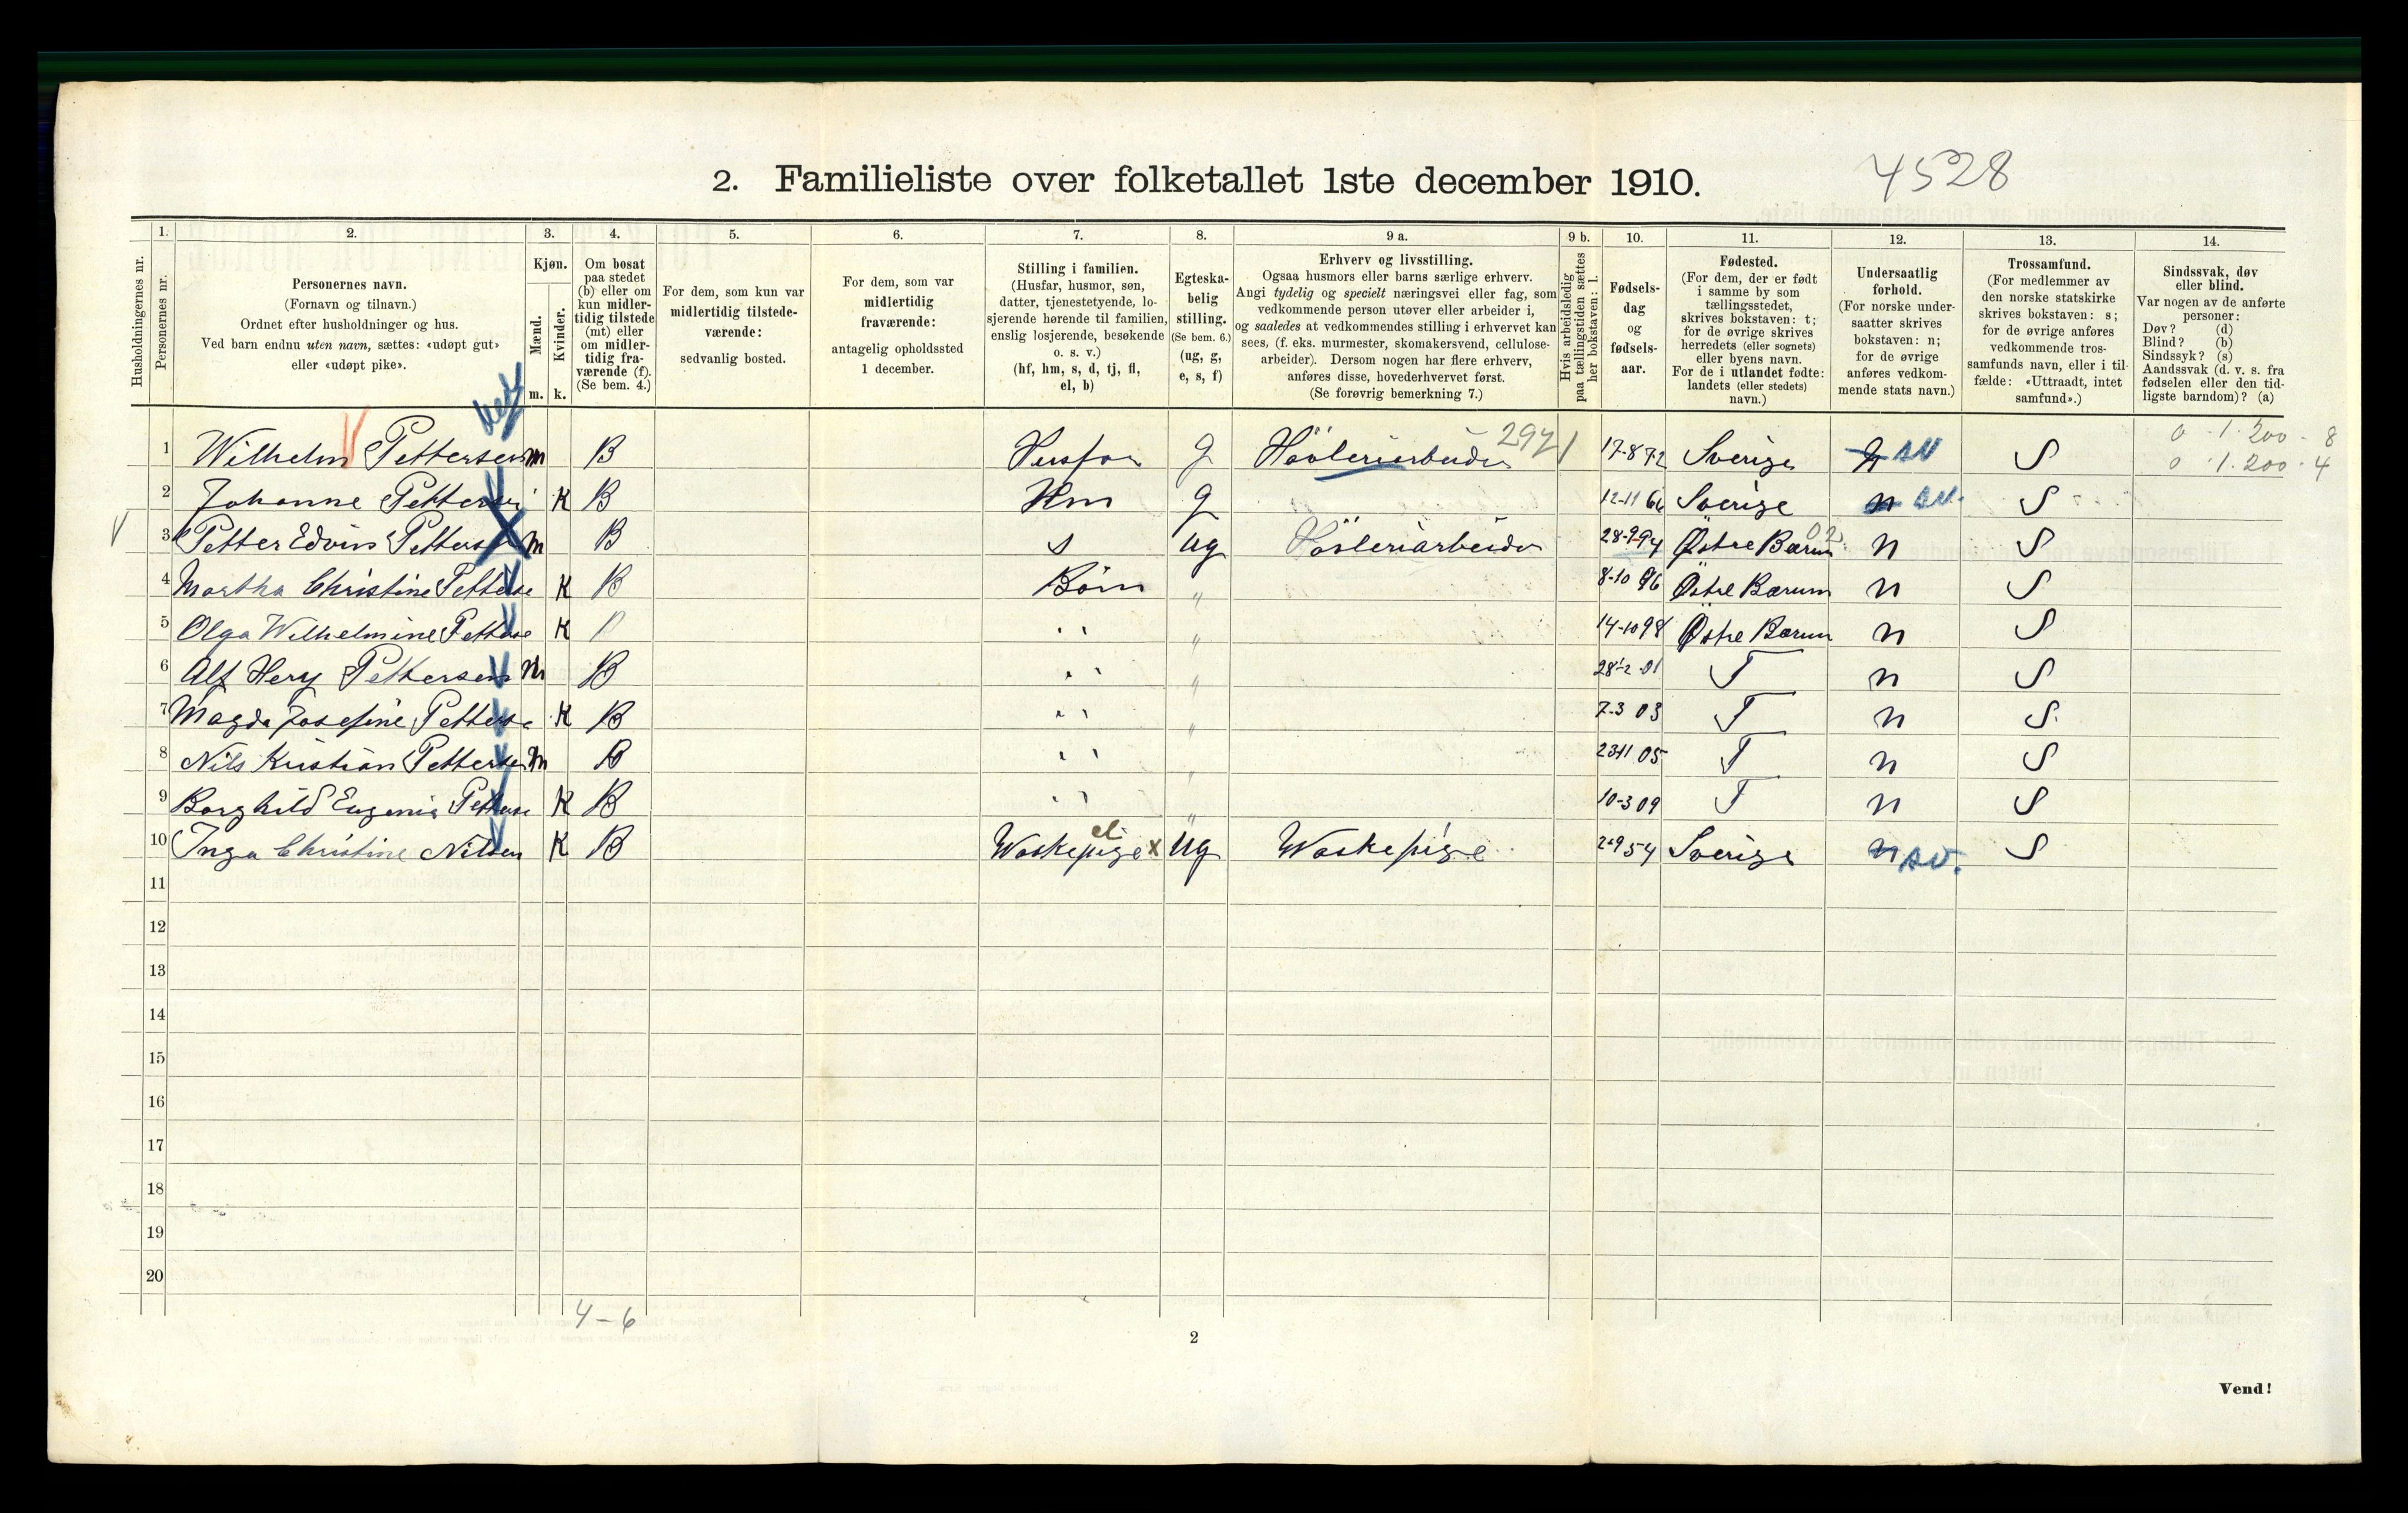 2. Familieliste over folketallet 1ste december 1910.
4528
1. 2. 3. 4. 5. 6. 7. 8. 9 a. 9 b. 10. 11. 12. 13. 14.
Husholdningernes nr.
Personernes nr.
Personernes navn.
(Fornavn og tilnavn.)
Ordnet efter husholdninger og hus.
Ved barn endnu uten navn, sættes: «udøpt gut»
eller «udøpt pike».
Kjøn.
Mænd.
Kvinder.
m. k.
Om bosat
paa stedet
(b) eller om
kun midler-
tidig tilstede
(mt) eller
om midler-
tidig fra-
værende (f).
(Se bem. 4.)
For dem, som kun var
midlertidig tilstede-
værende:
sedvanlig bosted.
For dem, som var
midlertidig
fraværende:
antagelig opholdssted
1 december.
Stilling i familien.
(Husfar, husmor, søn,
datter, tjenestetyende, lo-
sjerende hørende til familien,
enslig losjerende, besøkende
o. s. v.)
(hf, hm, s, d, tj, fl,
el, b)
Egteska-
belig
stilling.
(Se bem. 6.)
(ug, g,
e, s, f)
Erhverv og livsstilling.
Ogsaa husmors eller barns særlige erhverv.
Angi tydelig og specielt næringsvei eller fag, som
vedkommende person utøver eller arbeider i,
og saaledes at vedkommendes stilling i erhvervet kan
sees, (f. eks. murmester, skomakersvend, cellulose-
arbeider). Dersom nogen har flere erhverv,
anføres disse, hovederhvervet først.
(Se forøvrig bemerkning 7.)
Hvis arbeidsledig
paa tællingstiden sættes
her bokstaven: l.
Fødsels-
dag
og
fødsels-
aar.
Fødested.
(For dem, der er født
i samme by som
tællingsstedet,
skrives bokstaven: t;
for de øvrige skrives
herredets (eller sognets)
eller byens navn.
For de i utlandet fødte:
landets (eller stedets)
navn.)
Undersaatlig
forhold.
(For norske under-
saatter skrives
bokstaven: n;
for de øvrige
anføres vedkom-
mende stats navn.)
Trossamfund.
(For medlemmer av
den norske statskirke
skrives bokstaven: s;
for de øvrige anføres
vedkommende tros-
samfunds navn, eller i til-
fælde: «Uttraadt, intet
samfund».)
Sindssvak, døv
eller blind.
Var nogen av de anførte
personer:
Døv? (d)
Blind? (b)
Sindssyk? (s)
Aandssvak (d. v. s. fra
fødselen eller den tid-
ligste barndom)? (a)
1 Wilhelm Pettersen m B Husfar g Høvleriarbeider 17-8 72 Sverige n sv S 0 · 1.200 · 8
0 · 1.200 · 4
2 Johanne Pettersen K B Hm g 12-11 66 Sverige n sv. S
3 Petter Edvin Pettersen m B s ug Høvleriarbeider 28-9 94 Østre Bærum n S
4 Martha Christine Petterse K B Börn " 8-10 96 Østre Bærum n S
5 Olga Wilhelmine Petterse K B " " 14-10 98 Østre Bærum n S
6 Alf Hery Pettersen m B " " 28-2 01 T n S
7 Magda Josefine Petterse K B " " 7-3 03 T n S
8 Nils Kristian Pettersen m B " " 23-11 05 T n S
9 Borghild Eugenie Petterse K B " " 10-3 09 T n S
10 Inga Christine Nilsen K B Waskepige el x ug Waskepige 2-9 54 Sverige n sv. S
11
12
13
14
15
16
17
18
19
20
4-6
2
Vend!